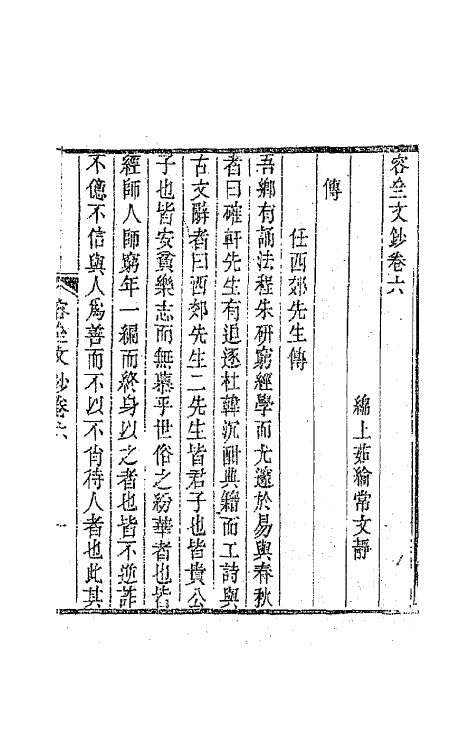 容仝文鈔卷六
綿上茹綸常文靜
傳
任西郊先生傳
吾鄉有誦法程朱研窮經學而尤邃於易與春秋
者曰確軒先生有追逐杜韓沉酣典籍而工詩與
古文辭者曰西郊先生二先生皆君子也皆貴公
子也皆安貧樂志而無慕乎世俗之紛華者也皆
經師人師窮年一編而終身以之者也皆不逆詐
不億不信與人爲善而不以不肖待人者也此其
容仝文鈔卷六
一